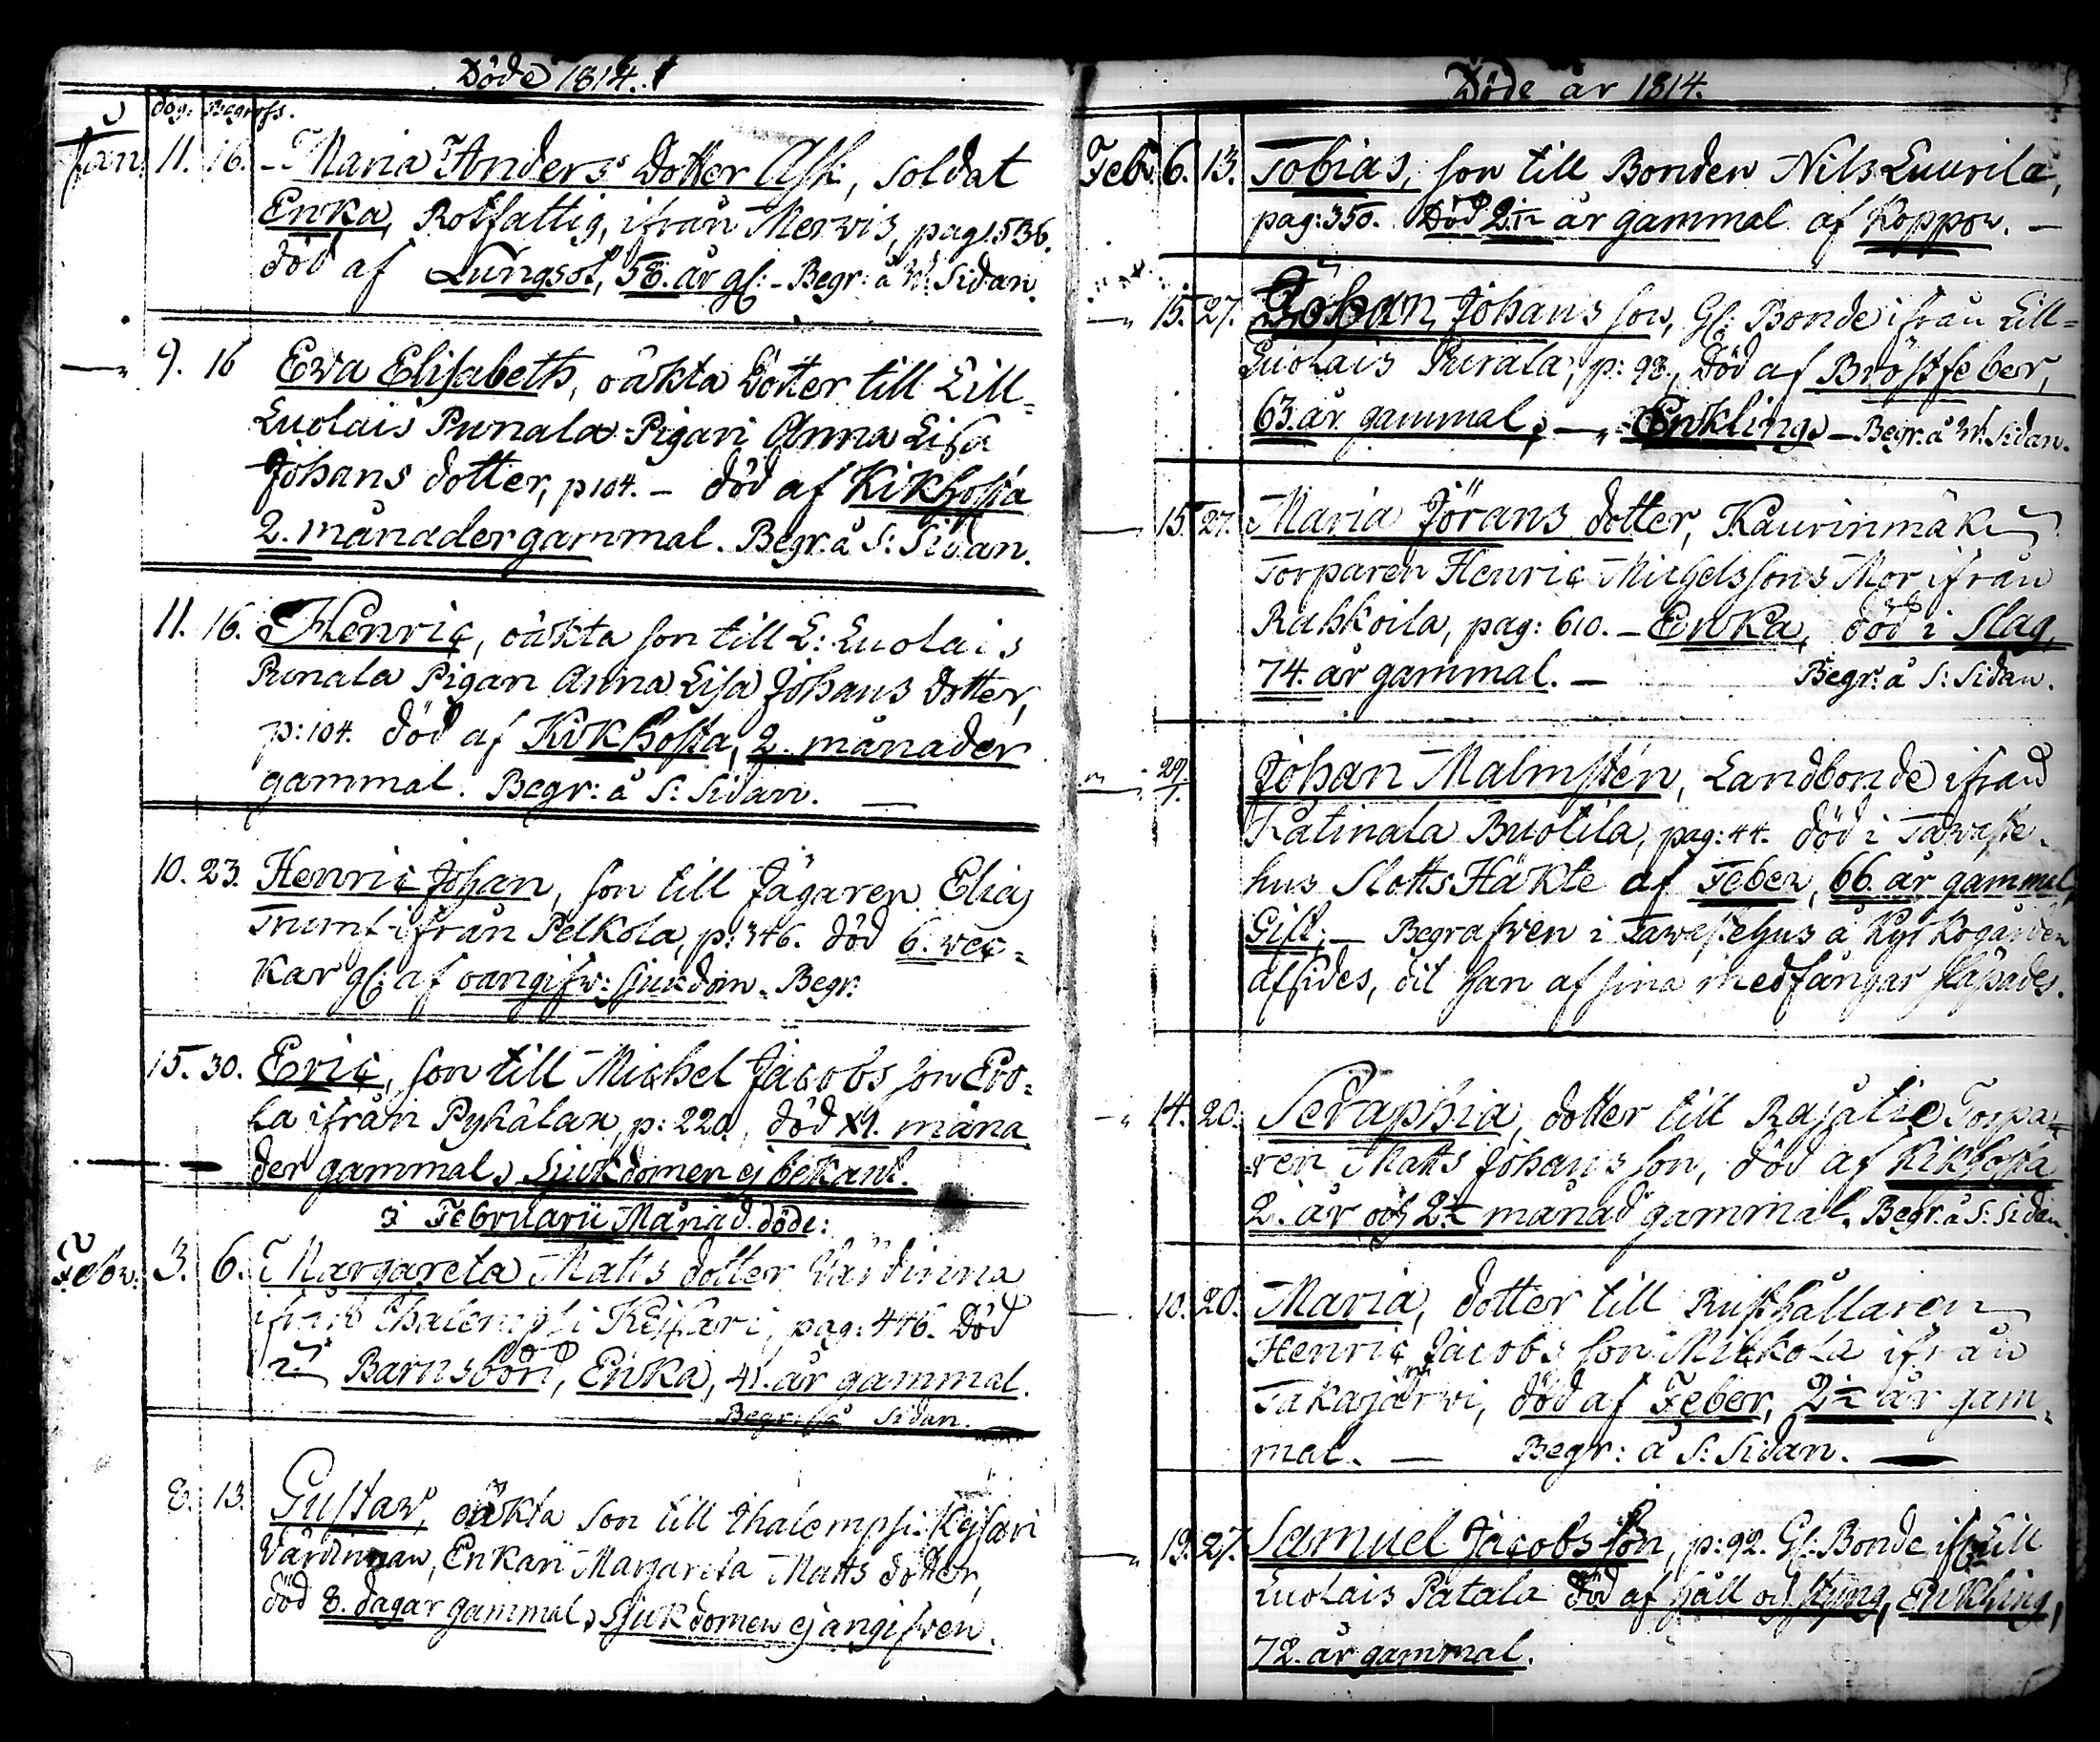 Döde 1814.
dög. Begrofs.
Jan. 11. 16. Maria Anders Dotter Ask, Soldat
Enka, Rotfattig, ifrån Merwis, pag. 536.
död af Lungsot, 58. år gl: - Begr: å N: Sidan.
9. 16 Ewa Elisabeth, oäkta Dotter till Lill-
Luolais Punala Pigan Anna Lisa
Johans dotter, p 104. - död af Kikhosta
2. månader gammal. Begr. å S: Sidan.
11. 16. Henric, oäkta son till L: Luolais
Punala Pigan Anna Lisa Johans dotter,
p: 104. död af Kikhosta, 2. månader
gammal. Begr: å S: Sidan. —
10. 23. Henric Johan, son till Jägaren Elias
Trumf ifrån Pelkola, p: 346. död 6. wec-
kar gl: af oangifw: sjukdom. Begr.
15. 30. Eric, son till Michel Jacobs son Ero-
la ifrån Pyhälax, p: 220, död X1. måna
der gammal, Sjukdomen ej bekant.
i Februarii Månad döde:
Febr. 3. 6. Margareta Matts dotter Värdinna
ifrån Ihalempi Keisari, pag: 446. Död
i Barnsbörd, Enka, 41. år gammal.
Begr: på Sidan.
8. 13. Gustaw, oäkta Son till Ihalempi: Keisari
Värdinnan, Enkan Margareta Matts dotter,
död 8. dagar gammal, Sjukdomen ej angifwen.
Döde år 1814.
Febr. 6. 13. Tobias, son till Bonden Nils Luurila,
pag: 350. Död 2 1/2 år gammal af Koppor. —
15. 27. Johan Johans son, Gl: Bonde ifrån Lill-
Luolais Purala, p: 98, Död af Bröstfeber,
63. år gammal, — Enkling, — Begr. å N: Sidan.
15. 27. Maria Jörans dotter, Kaurinmäki
Torparen Henric Michelssons Mor ifrån
Ruhkoila, pag: 610. — Enka, död i Slag,
74. år gammal. — Begr. å S: Sidan.
29/1. Johan Malmstén, Landbonde ifrån
Katinala Buotila, pag: 44. död i Tawaste-
hus Slotts Häkte af Feber, 66. år gammal,
Gift; — Begrafwen i Tawastehus å Kyrkogården
afsides, dit han af sina medfångar släpades.
14. 20. Seraphia, dotter till Rajalie Torpa-
ren Matts Johans son, död af Kikhosta
2. år och 2 1/2 månad gammal. Begr. å S: Sidan.
10. 20. Maria, dotter till Rusthållaren
Henric Jacobs son Mickola ifrån
Takajärwi, död af Feber, 2 1/2 år gam-
mal. — Begr: å S: Sidan. —
19. 27. Samuel Jacobs Son, p: 92. Gl: Bonde ifr: Lill
Luolais Patala död af håll och styng, Enkling,
72. år gammal.